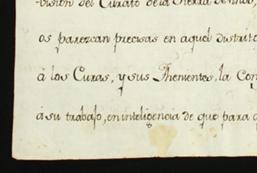 -vision del Curato de la Sierra de
os parezcan precisas en aquel distrito
à los Curas, y sus Thenientes, la Con
á su trabajo, en inteligencia de que para